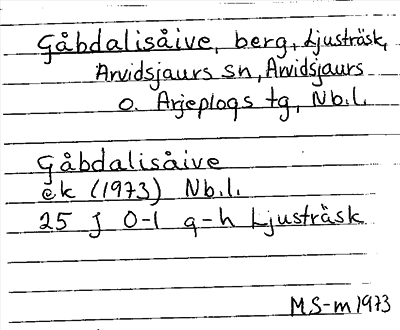 Gåbdalisåive, berg, Ljusträsk,
Arvidsjaurs sn, Arvidsjaurs
o. Arjeplogs tg, Nb.l.
Gåbdalisåive
ek (1973) Nb.l.
25 J 0-1 g-h Ljusträsk
MS-m 1973